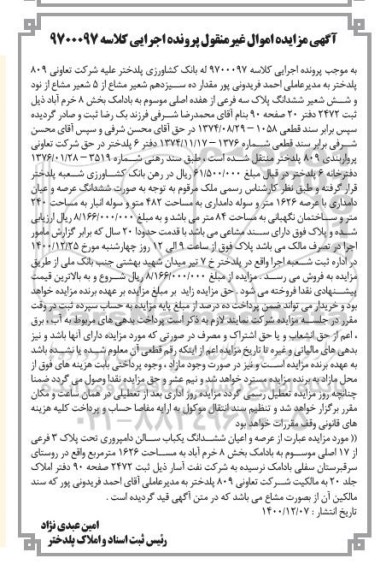 آگهی مزایده اموال غیرمنقول پرونده اجرایی کلاسه ۹۷۰۰۰۹۷
به موجب پرونده اجرایی کلاسه ۹۷۰۰۰۹۷ له بانک کشاورزی پلدختر علیه شرکت تعاونی ۸۰۹
پلدختر به مدیرعاملی احمد فریدونی پور مقدار ده سیزدهم شعیر مشاع از ۵ شعیر مشاع از نود
و شش شعیر ششدانگ پلاک سه فرعی از هفده اصلی موسوم به بادامک بخش ۸ خرم آباد ذیل
ثبت ۲۴۷۲ دفتر ۲۰ صفحه ۹۰ بنام آقای محمدرضا شرفی فرزند بک رضا ثبت و صادر گردیده
سپس برابر سند قطعی ۱۰۵۸ – ۱۳۷۴/۰۸/۲۹ در حق آقای محسن شرفی و سپس آقای محسن
شرفی برابر سند قطعی شماره ۱۳۷۶ – ۱۳۷۴/۱۱/۱۷ دفتر ۶ پلدختر در حق شرکت تعاونی
پرواربندی ۸۰۹ پلدختر منتقل شده است ، طبق سند رهنی شماره ۳۵۱۹ – ۱۳۷۶/۰۱/۲۸
دفترخانه ۶ پلدختر در قبال مبلغ ۶۱/۵۰۰/۰۰۰ ریال در رهن بانک کشاورزی شعبه پلدختر
قرار گرفته و طبق نظر کارشناس رسمی ملک مرقوم به توجه به صورت ششدانگ عرصه و عیان
دامداری با عرصه ۱۶۲۶ متر و سوله دامداری به مساحت ۴۸۲ متر و سوله انبار به مساحت ۲۴۰
متر و ساختمان نگهبانی به مساحت ۸۴ متر می باشد و به مبلغ ۸/۱۶۶/۰۰۰/۰۰۰ ریال ارزیابی
شده و پلاک فوق دارای سند مشاعی می باشد با قدمت حدودا ۲۰ سال که برابر گزارش مامور
اجرا در تصرف مالک می باشد پلاک فوق از ساعت ۹ الی ۱۲ روز چهارشنبه مورخ ۱۴۰۰/۱۲/۲۵
در اداره ثبت شعبه اجرا واقع در پلدختر خ ۷ تیر میدان شهید بهشتی جنب بانک ملی از طریق
مزایده به فروش می رسد . مزایده از مبلغ ۸/۱۶۶/۰۰۰/۰۰۰ ریال شروع و به بالاترین قیمت
پیشنهادی نقدا فروخته می شود . حق مزایده زاید بر مبلغ مزایده بر عهده برنده مزایده خواهد
بود و خریدار می تواند ضمن پرداخت ده درصد از مبلغ پایه مزایده به حساب سپرده ثبت در وقت
مقرر در جلسه مزایده شرکت نمایند لازم به ذکر است پرداخت بدهی های مربوط به آب ، برق
، اعم از حق انشعاب و یا حق اشتراک و مصرف در صورتی که مورد مزایده دارای آنها باشد و نیز
بدهی های مالیاتی و غیره تا تاریخ مزایده اعم از اینکه رقم قطعی آن معلوم شده یا نشده باشد
به عهده برنده مزایده است و نیز در صورت وجود مازاد ، وجوه پرداختی بابت هزینه های فوق از
محل مازاد به برنده مزایده مسترد خواهد شد و نیم عشر و حق مزایده نقدا وصول می گردد ضمنا
چنانچه روز مزایده تعطیل رسمی گردد مزایده روز اداری بعد از تعطیلی در همان ساعت و مکان
مقرر برگزار خواهد شد و تنظیم سند انتقال موکول به ارایه مفاصا حساب و پرداخت کلیه هزینه
های قانونی وقف مقررات خواهد بود
(( مورد مزایده عبارت از عرصه و اعیان ششدانگ یکباب سالن دامپروری تحت پلاک ۳ فرعی
از ۱۷ اصلی موسوم به بادامک بخش ۸ خرم آباد به مساحت ۱۶۲۶ مترمربع واقع در روستای
سرقبرستان سفلی بادامک نرسیده به شرکت نفت آسار ذیل ثبت ۲۴۷۲ صفحه ۹۰ دفتر املاک
جلد ۲۰ به مالکیت شرکت تعاونی ۸۰۹ پلدختر به مدیرعاملی آقای احمد فریدونی پور که سند
مالکین آن از بصورت مشاع می باشد که در متن آگهی قید گردیده است .
تاریخ انتشار : ۱۴۰۰/۱۲/۰۷
امین عبدی نژاد
رئیس ثبت اسناد و املاک پلدختر